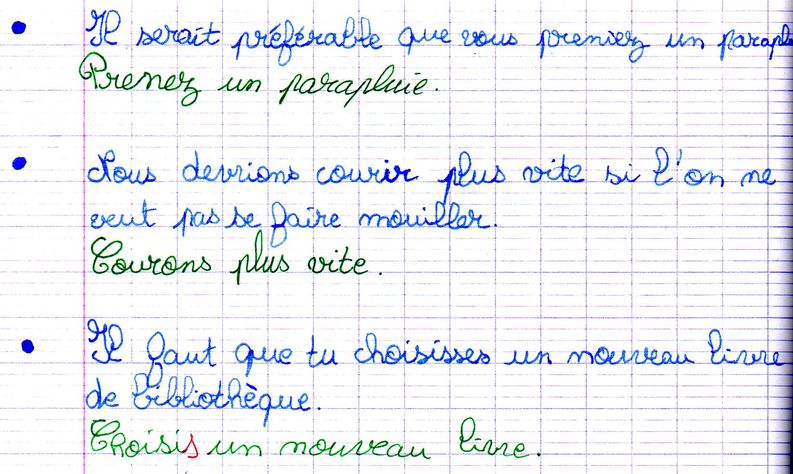 Il serait préférable que vous preniez un paraplu
Prenez un parapluie.
Nous devrions courir plus vite si l'on ne
veut pas se faire mouiller.
Courons plus vite.
Il faut que tu choisisses un nouveau livre
de bibliothèque.
Choisis un nouveau livre.